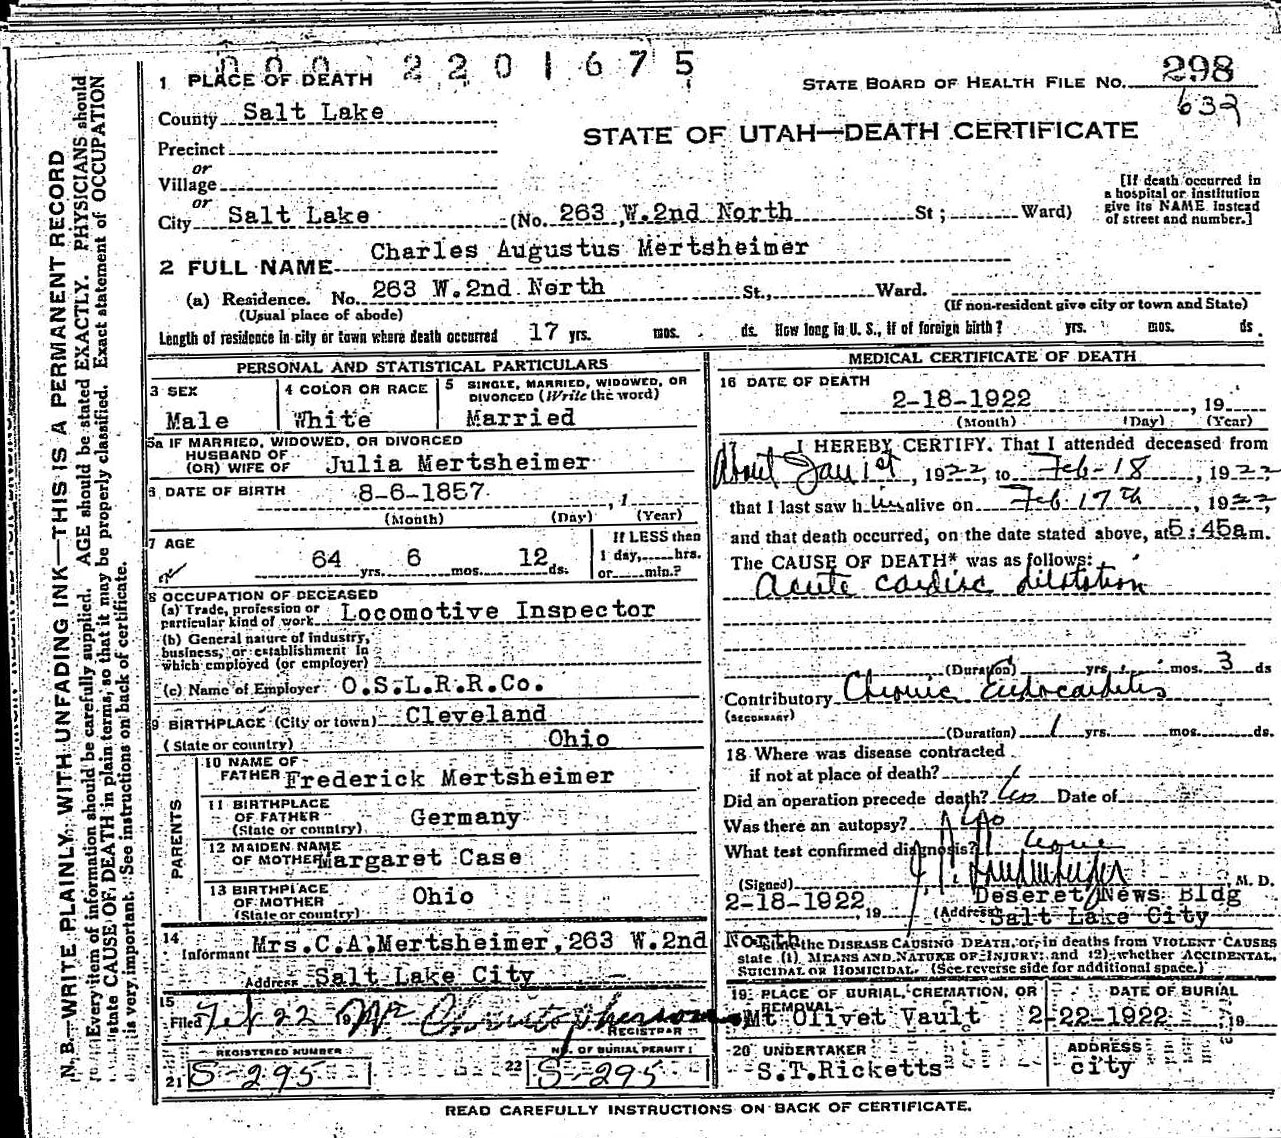 000 2201675
1 PLACE OF DEATH
STATE BOARD OF HEALTH FILE NO. 298
632
County Salt Lake
STATE OF UTAH—DEATH CERTIFICATE
Precinct
or
Village
or
City Salt Lake (No. 263 W.2nd North St; Ward)
[If death occurred in
a hospital or institution
give its NAME instead
of street and number.]
2 FULL NAME Charles Augustus Mertsheimer
(a) Residence. No. 263 W.2nd North St., Ward.
(Usual place of abode)
(If non-resident give city or town and State)
Length of residence in city or town where death occurred 17 yrs. mos. ds. How long in U. S., if of foreign birth? yrs. mos. ds.
PERSONAL AND STATISTICAL PARTICULARS
3 SEX
Male
4 COLOR OR RACE
White
5 SINGLE, MARRIED, WIDOWED, OR
DIVORCED (Write the word)
Married
5a IF MARRIED, WIDOWED, OR DIVORCED
HUSBAND OF
(OR) WIFE OF Julia Mertsheimer
6 DATE OF BIRTH 8-6-1857, 1
(Month) (Day) (Year)
7 AGE
64 yrs. 6 mos. 12 ds.
If LESS than
1 day, hrs.
or min.?
8 OCCUPATION OF DECEASED
(a) Trade, profession or
particular kind of work Locomotive Inspector
(b) General nature of industry,
business, or establishment in
which employed (or employer)
(c) Name of Employer O.S.L.R.R.Co.
9 BIRTHPLACE (City or town) Cleveland
(State or country) Ohio
PARENTS
10 NAME OF
FATHER Frederick Mertsheimer
11 BIRTHPLACE
OF FATHER
(State or country) Germany
12 MAIDEN NAME
OF MOTHER Margaret Case
13 BIRTHPLACE
OF MOTHER
(State or country) Ohio
14
Informant Mrs.C.A.Mertsheimer, 263 W.2nd North
Address Salt Lake City
15
Filed Feb 22 19 Mc Christopherson
REGISTRAR
REGISTERED NUMBER
21 S-295
NO. OF BURIAL PERMIT
22 S-295
MEDICAL CERTIFICATE OF DEATH
16 DATE OF DEATH
2-18-1922, 19
(Month) (Day) (Year)
I HEREBY CERTIFY. That I attended deceased from
About Jan 1st, 1922, to Feb-18, 1922,
that I last saw him alive on Feb 17th, 1922,
and that death occurred, on the date stated above, at 5:45a m.
The CAUSE OF DEATH* was as follows:
Acute cardiac dilatation
(Duration) yrs. mos. 3 ds
Contributory Chronic Endocarditis
(SECONDARY)
(Duration) 1 yrs. mos. ds.
18 Where was disease contracted
if not at place of death?
Did an operation precede death? No Date of
Was there an autopsy? No
What test confirmed diagnosis?
(Signed) M. D.
2-18-1922 19 (Address Deseret News Bldg
Salt Lake City
State the DISEASE CAUSING DEATH, or, in deaths from VIOLENT CAUSES
state (1) MEANS AND NATURE OF INJURY; and (2) whether ACCIDENTAL,
SUICIDAL OR HOMICIDAL. (See reverse side for additional space.)
19 PLACE OF BURIAL, CREMATION, OR
REMOVAL
Mt Olivet Vault
DATE OF BURIAL
2-22-1922 19
20 UNDERTAKER
S.T.Ricketts
ADDRESS
city
READ CAREFULLY INSTRUCTIONS ON BACK OF CERTIFICATE.
N. B.—WRITE PLAINLY, WITH UNFADING INK—THIS IS A PERMANENT RECORD
Every item of information should be carefully supplied. AGE should be stated EXACTLY. PHYSICIANS should
state CAUSE OF DEATH in plain terms, so that it may be properly classified. Exact statement of OCCUPATION
is very important. See instructions on back of certificate.